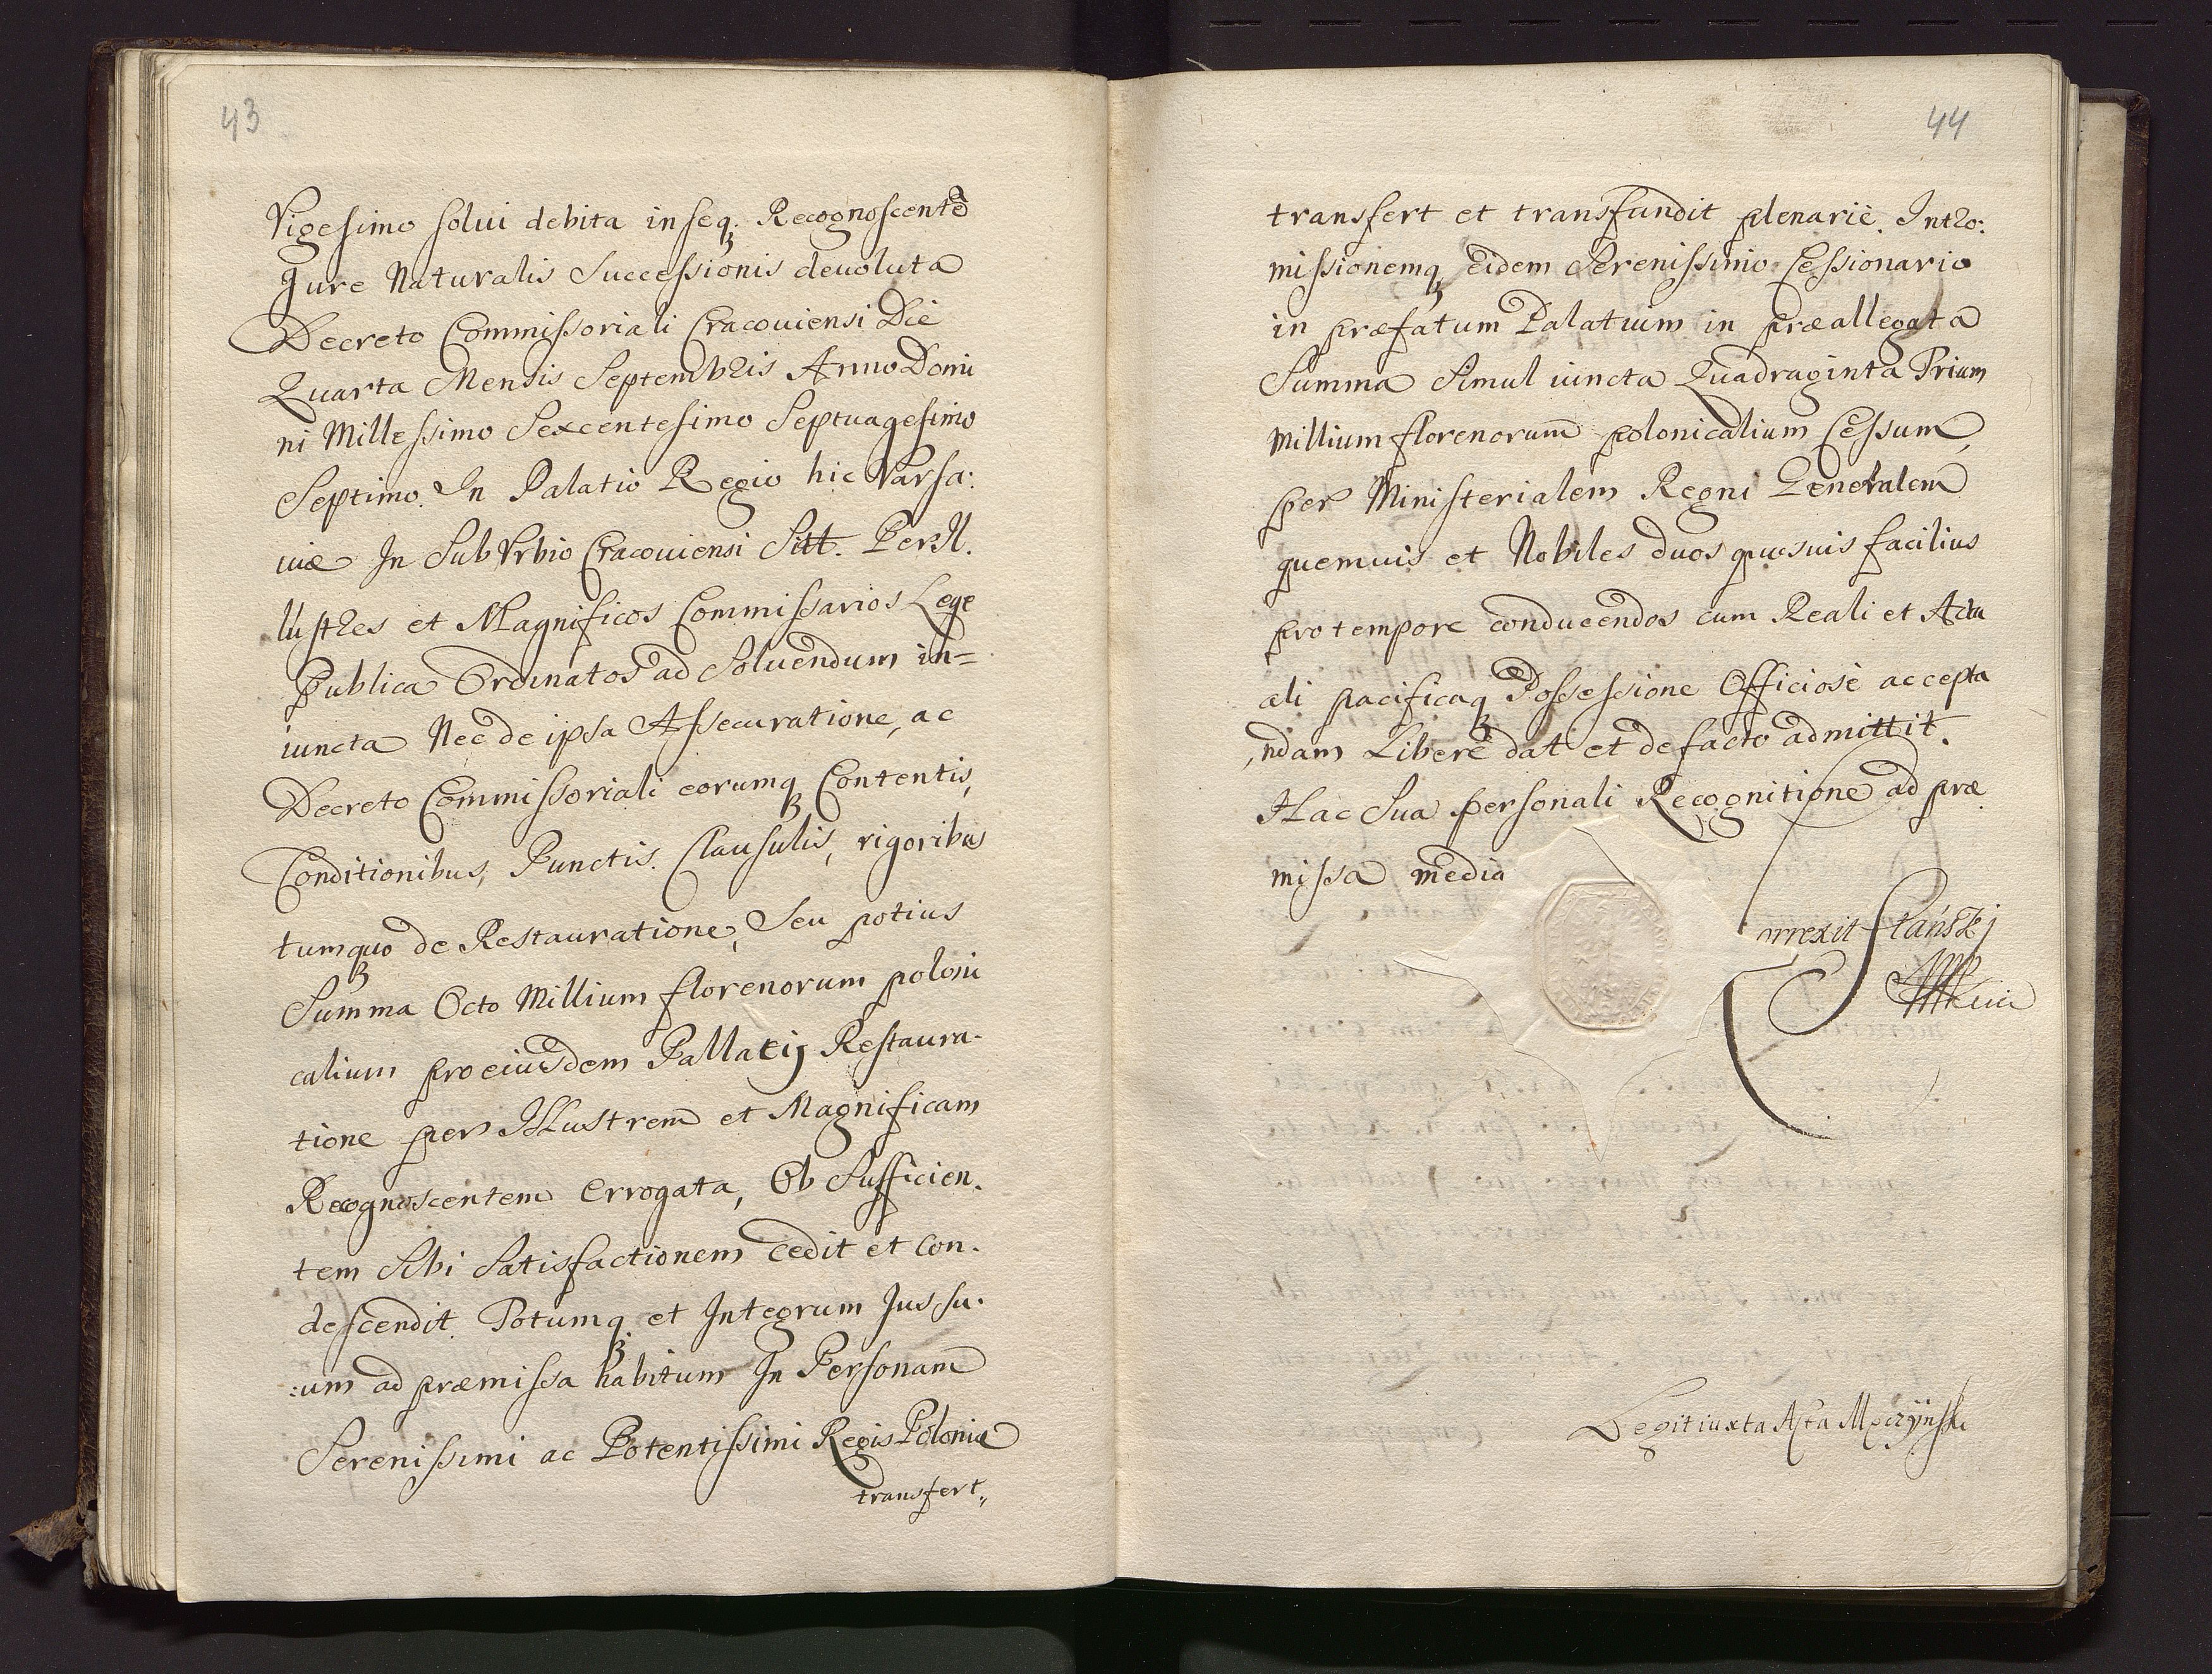 43
Vigesimo solui debita in seq; Recognoscente
Jure Naturalis Successionis deuoluta
Decreto Commissoriali Cracouiensi Die
Quarta Mensis Septembris Anno Domi
ni Millessimo Sexcentesimo Septuagesimo
Septimo. In Palatio Regio hic Varsa:
uiæ In SubVrbio Cracouiensi Sitt. Per Il.
lustres et Magnificos Commissarios Lege
Publica Ordinatos ad Soluendum in=
iuncta Nec de ipsa Assecuratione, ac
Decreto Commissoriali eorumq; Contentis,
Conditionibus, Punctis. Clausulis, rigoribus
tumquo de Restauratione, Seu potius
Summa Octo Millium florenorum poloni
calium pro eiusdem Pallatij Restaura-
tione per Illustrem et Magnificam
Recognoscentem Errogata, Ob Sufficien.
tem Sibi Satisfactionem Cedit et Con.
descendit. Totumq; et Integrum Jus su.
:um ad præmissa habitum In Personam
Serenissimi ac Potentissimi Regis Poloniæ
transfert,,
44
transfert et transfundit plenariè. Intro:
missionemq; Eidem Serenissimo Cessionario
in præfatum Palatium in præallegata
Summa Simul iuncta Quadraginta Trium
Millium florenorum polonicalium Cessum,
per Ministerialem Regni Generalem
quemuis et Nobiles duos quosuis facilius
pro tempore conducendos cum Reali et Actu
ali pacificaq; Possessione Officiosè accepta
,ndam Liberè dat et de facto admittit.
Hac Sua personali Recognitione ad præ
missa media
Correxit Stański
Legit iuxta Acta Mączyński